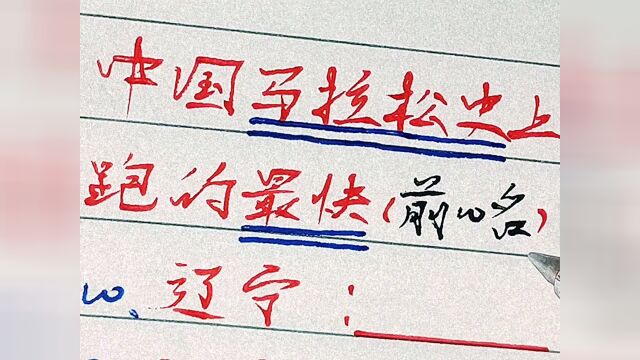 中国马拉松史上
跑的最快(前10名)
10、辽宁：